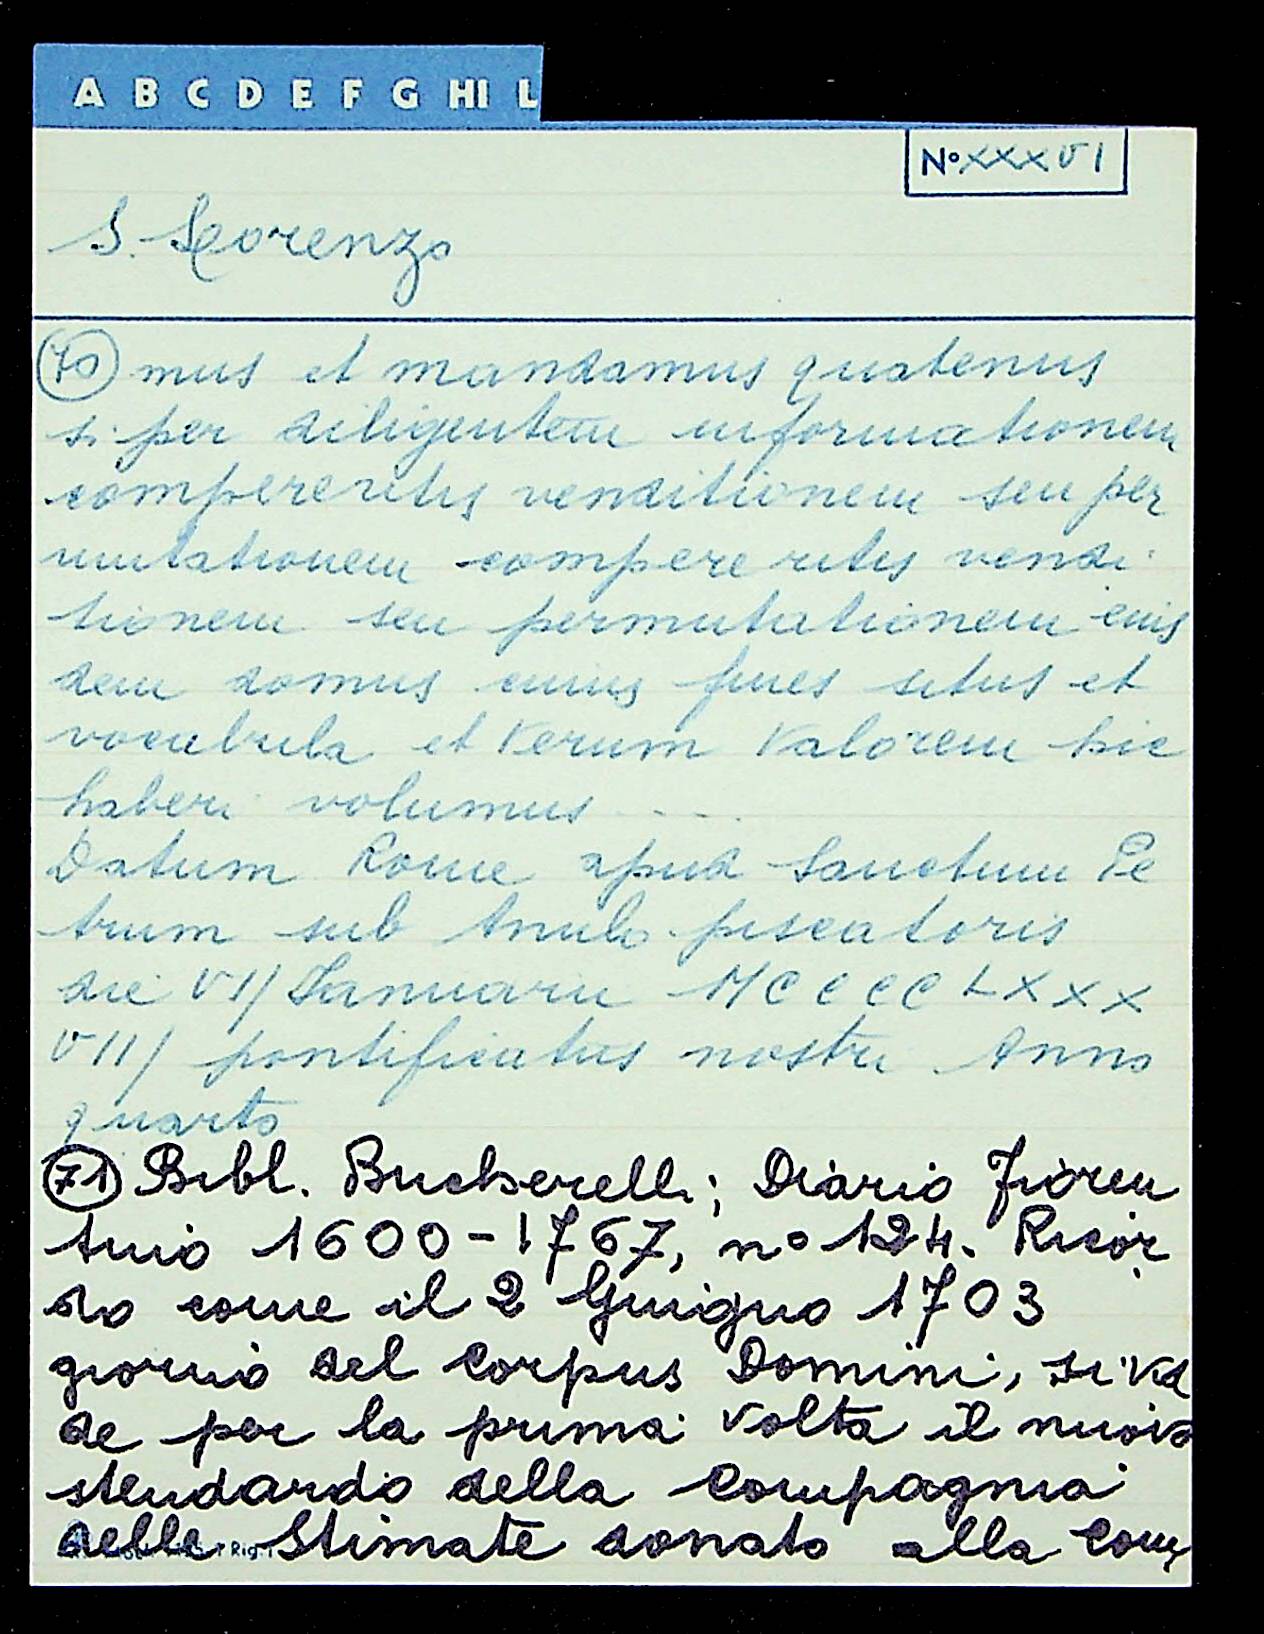 A B C D E F G HI L
N° XXXVI
S. Lorenzo
70 mus et mandamus quatenus
si per diligentem informationem
compereritis venditionem seu per
mutationem compereritis vendi
tionem seu permutationem eius
dem domus cuius fines situs et
vocabula et verum valorem hic
haberi volumus ....
Datum Rome apud Sanctum Pe
trum sub Anulo piscatoris
die VI/ Januarii MCCCCLXXX
VII/ pontificatus nostri Anno
quarto
71 Bibl. Buckerelli; Diario Fioren
tino 1600-1767, n° 124. Ricor
do come il 2 Giuigno 1703
giorno del Corpus Domini, si va
de per la prima volta il nuovo
stendardo della Compagnia
delle Stimate donato alla Com